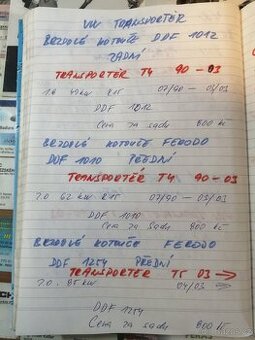 VW TRANSPORTÉR
BRZDOVÉ KOTOUČE DDF 1012
ZADNÍ
TRANSPORTÉR T4 90-03
07/90 - 03/03
DDF 1012
Cena za sadu 800 Kč
BRZDOVÉ KOTOUČE FERODO
DDF 1010 PŘEDNÍ
TRANSPORTÉR T4 90-03
2.0 62 KW R15 07/90 - 03/03
DDF 1010
Cena za sadu 800 Kč
BRZDOVÉ KOTOUČE FERODO
DDF 1254 PŘEDNÍ
TRANSPORTÉR T5 03 →
2.0 85 KW 04/03 →
DDF 1254
Cena za sadu 800 Kč